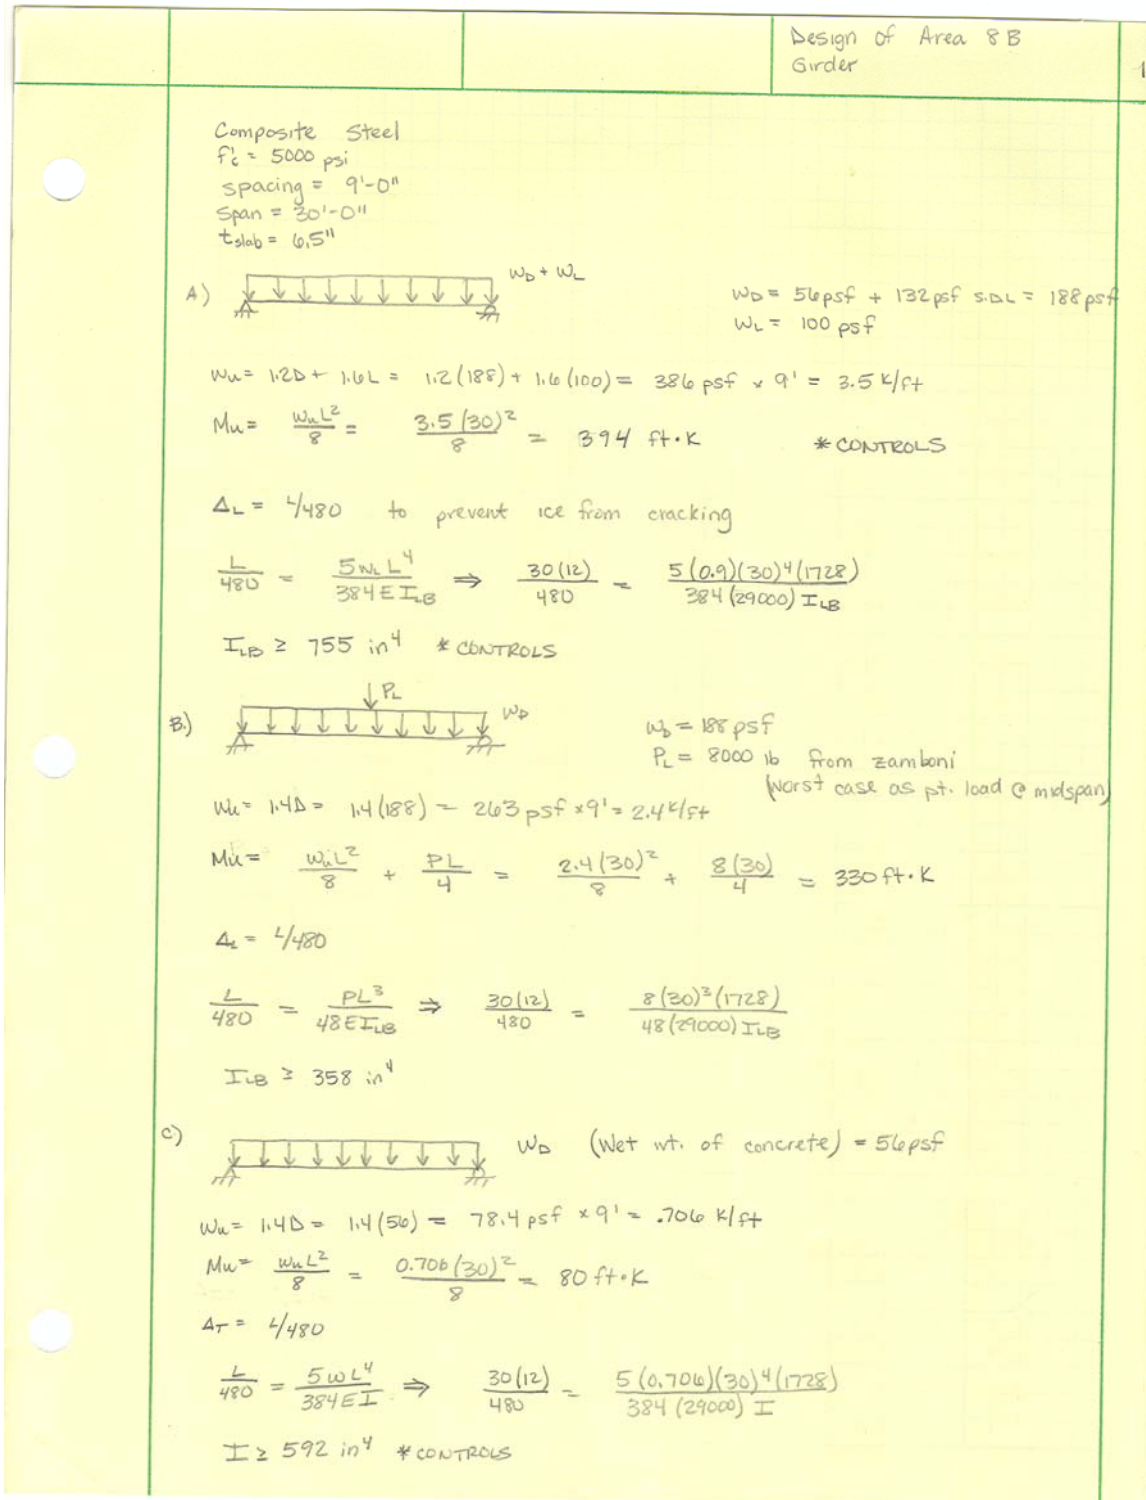 Design of Area 8B
Girder
1
Composite Steel
f'c = 5000 psi
spacing = 9'-0"
Span = 30'-0"
tslab = 6.5"
A) WD + WL
WD = 56psf + 132psf S.DL = 188psf
WL = 100 psf
Wu = 1.2D + 1.6L = 1.2(188) + 1.6(100) = 386 psf x 9' = 3.5 K/ft
Mu = WuL²/8 = 3.5(30)²/8 = 394 ft·K *CONTROLS
ΔL = L/480 to prevent ice from cracking
L/480 = 5WLL⁴/384EILB ⇒ 30(12)/480 = 5(0.9)(30)⁴(1728)/384(29000)ILB
ILB ≥ 755 in⁴ *CONTROLS
B.) PL WD
WD = 188 psf
PL = 8000 lb from zamboni
(worst case as pt. load @ midspan)
Wu = 1.4D = 1.4(188) = 263 psf x9' = 2.4 K/ft
Mu = WuL²/8 + PL/4 = 2.4(30)²/8 + 8(30)/4 = 330 ft·K
ΔL = L/480
L/480 = PL³/48EILB ⇒ 30(12)/480 = 8(30)³(1728)/48(29000)ILB
ILB ≥ 358 in⁴
C) WD (Wet wt. of concrete) = 56psf
Wu = 1.4D = 1.4(56) = 78.4 psf x9' = .706 K/ft
Mu = WuL²/8 = 0.706(30)²/8 = 80 ft·K
ΔT = L/480
L/480 = 5wL⁴/384EI ⇒ 30(12)/480 = 5(0.706)(30)⁴(1728)/384(29000) I
I ≥ 592 in⁴ *CONTROLS